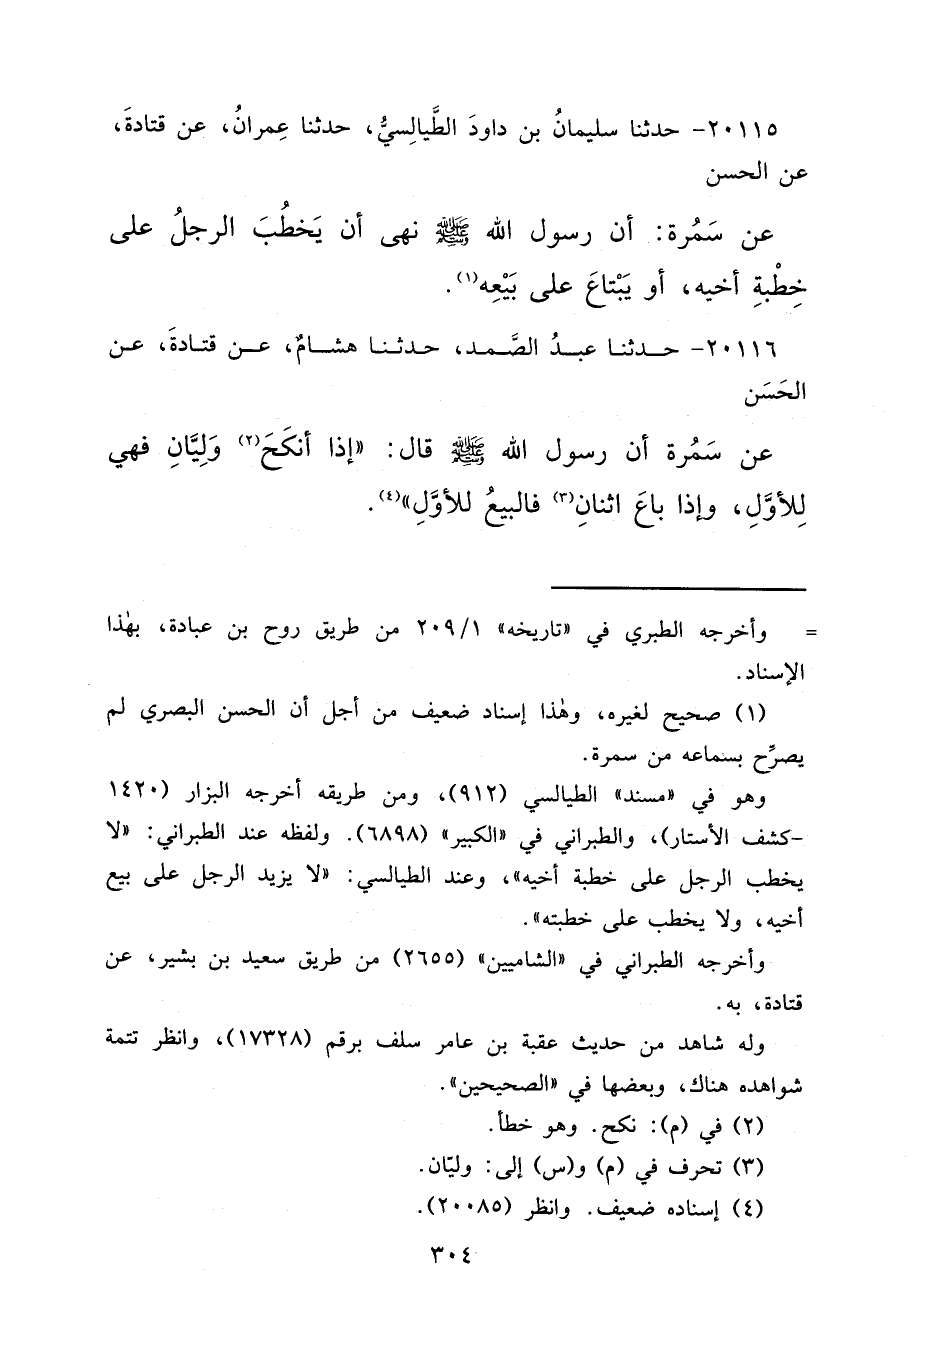 ٢٠١١٥- حدثنا سليمانُ بن داودَ الطَّيالِسيُّ، حدثنا عِمرانُ، عن قتادةَ،
عن الحسن
عن سَمُرة: أن رسول الله ﷺ نهى أن يَخطُبَ الرجلُ على
خِطْبةِ أخيه، أو يَبْتاعَ على بَيْعِه(١).
٢٠١١٦- حدثنا عبدُ الصَّمد، حدثنا هشامٌ، عن قتادةَ، عن
الحَسَن
عن سَمُرة أن رسول الله ﷺ قال: «إذا أنكَحَ(٢) وَلِيَّانِ فهي
لِلأوَّلِ، وإذا باعَ اثنانِ(٣) فالبيعُ للأوَّلِ»(٤).
= وأخرجه الطبري في «تاريخه» ٢٠٩/١ من طريق روح بن عبادة، بهٰذا
الإسناد.
(١) صحيح لغيره، وهٰذا إسناد ضعيف من أجل أن الحسن البصري لم
يصرِّح بسماعه من سمرة.
وهو في «مسند» الطيالسي (٩١٢)، ومن طريقه أخرجه البزار (١٤٢٠
-كشف الأستار)، والطبراني في «الكبير» (٦٨٩٨). ولفظه عند الطبراني: «لا
يخطب الرجل على خطبة أخيه»، وعند الطيالسي: «لا يزيد الرجل على بيع
أخيه، ولا يخطب على خطبته».
وأخرجه الطبراني في «الشاميين» (٢٦٥٥) من طريق سعيد بن بشير، عن
قتادة، به.
وله شاهد من حديث عقبة بن عامر سلف برقم (١٧٣٢٨)، وانظر تتمة
شواهده هناك، وبعضها في «الصحيحين».
(٢) في (م): نكح. وهو خطأ.
(٣) تحرف في (م) و(س) إلى: وليّان.
(٤) إسناده ضعيف. وانظر (٢٠٠٨٥).
٣٠٤